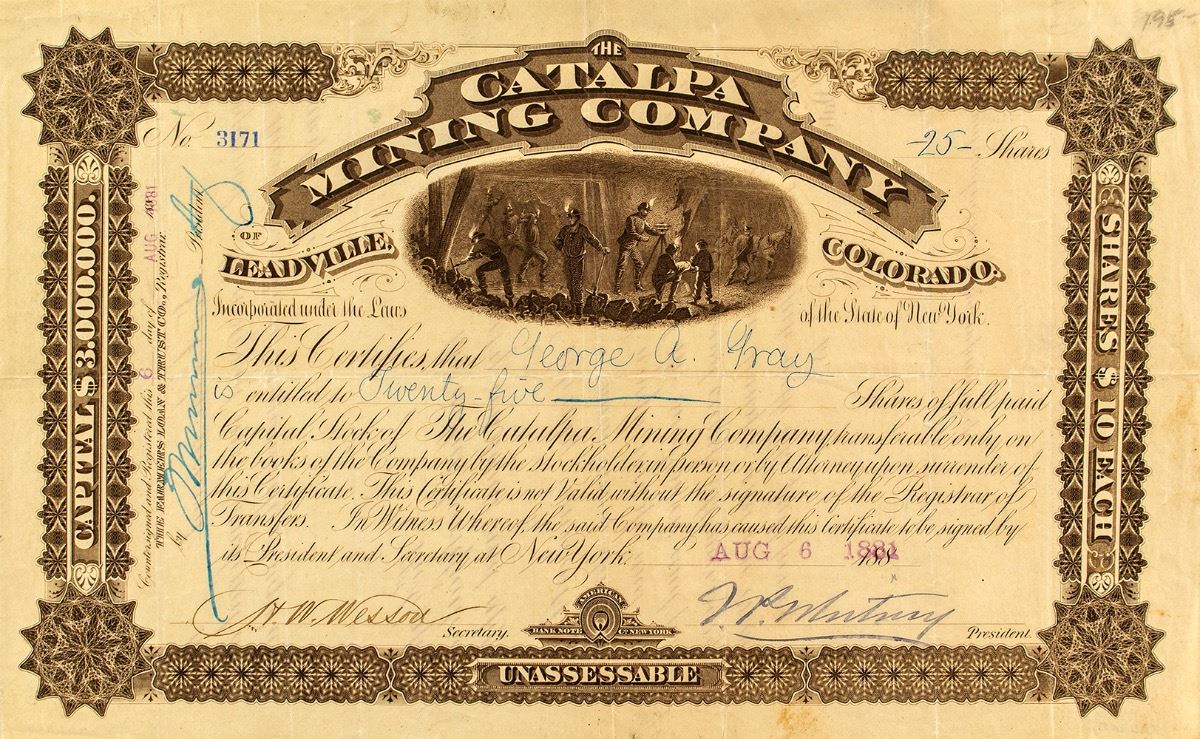 195-
THE
CATALPA
MINING COMPANY
No. 3171
-25- Shares
OF
LEADVILLE, COLORADO.
Incorporated under the Laws of the State of New York.
This Certifies, that George A. Gray
is entitled to Twenty-five Shares of full paid
Capital Stock of The Catalpa Mining Company, transferable only on
the books of the Company by the Stockholder, in person or by Attorney upon surrender of
this Certificate. This Certificate is not Valid without the signature of the Registrar of
Transfers. In Witness Whereof, the said Company has caused this Certificate to be signed by
its President and Secretary at New York. AUG 6 1881 188
H. W. Wesson Secretary.
President.
AMERICAN
BANK NOTE CO. NEW YORK
UNASSESSABLE
CAPITAL $ 3.000.000.
Countersigned and Registered this 6 day of AUG 1881
THE FARMERS LOAN & TRUST CO., Registrar
by President
SHARES $ 10 EACH